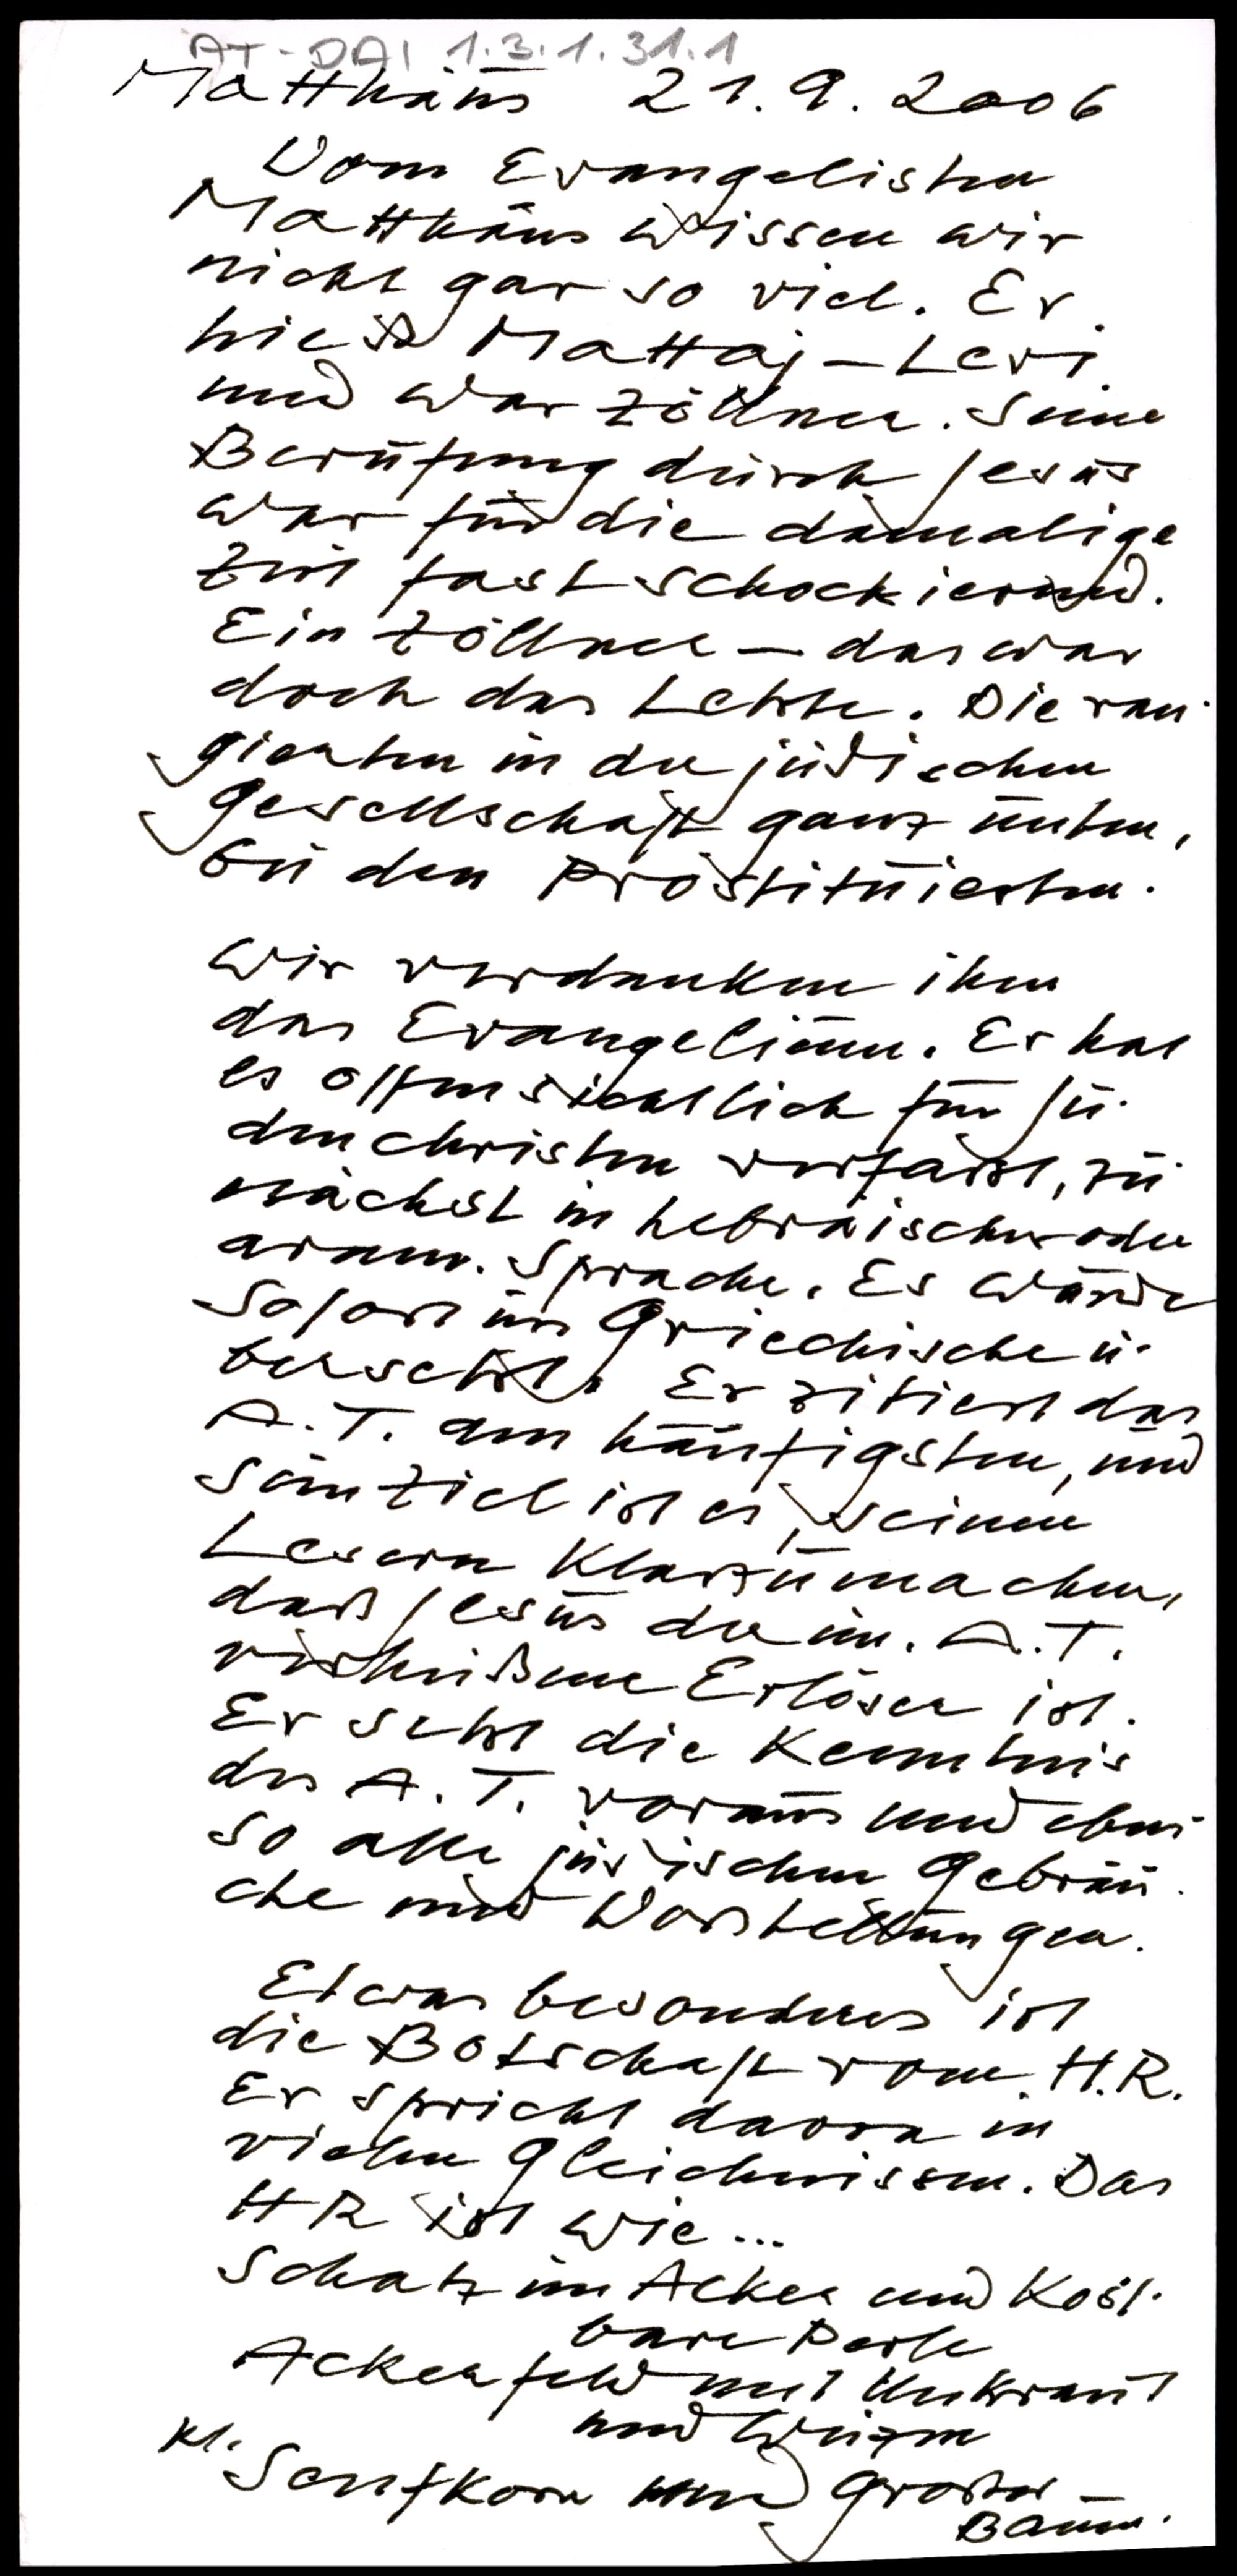 AT-DAI 1.3.1.31.1
Matthäus 21.9.2006
Vom Evangelisten
Matthäus wissen wir
nicht gar so viel. Er
hieß Mattaj-Levi
und war Zöllner. Seine
Berufung durch Jesus
war für die damalige
Zeit fast schockierend.
Ein Zöllner – das war
doch das Letzte. Die ran-
gierten in der jüdischen
Gesellschaft ganz unten,
bei den Prostituierten.
Wir verdanken ihm
das Evangelium. Er hat
es offensichtlich für Ju-
denchristen verfasst, zu-
nächst in hebräischer oder
aram. Sprache. Es wurde
sofort ins Griechische ü-
bersetzt. Er zitiert das
A.T. am häufigsten, und
sein Ziel ist es, seinen
Lesern klarzumachen,
daß Jesus der im A.T.
verheißene Erlöser ist.
Er setzt die Kenntnis
des A.T. voraus und eben-
so alle jüdischen Gebräu-
che und Vorstellungen.
Etwas besonderes ist
die Botschaft vom H.R.
Er spricht davon in
vielen Gleichnissen. Das
HR ist wie...
Schatz im Acker und Kost-
bare Perle
Ackerfeld mit Unkraut
und Weizen
Kl. Senfkorn und großer
Baum.